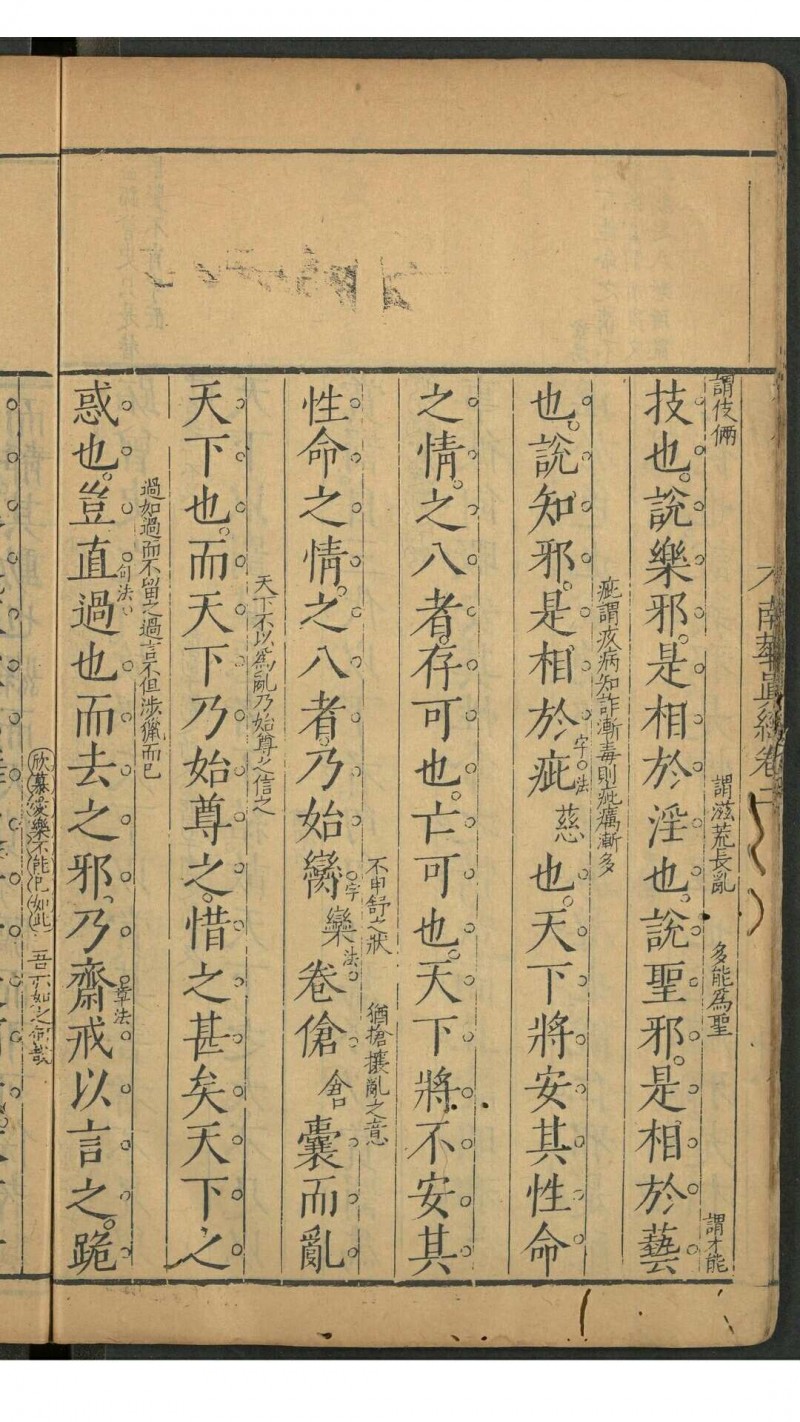 南華眞經卷
謂伎倆
謂滋荒長亂
多能爲聖
謂才能
技也說樂邪是相於淫也說聖邪是相於藝
疵謂疚病知詐漸毒則疵癘漸多
也說知邪是相於疵慈也天下將安其性命
字法
之情之八者存可也亡可也天下將不安其
不申舒之狀
猶搶攘亂之意
性命之情之八者乃始臠欒卷傖倉囊而亂
字法
天下不以爲亂乃始尊之信之
天下也而天下乃始尊之惜之甚矣天下之
過如過而不留之過言不但涉獵而已
惑也豈直過也而去之邪乃齋戒以言之跪
句法
章法
欣慕愛樂不能已如此
吾亦如之何哉